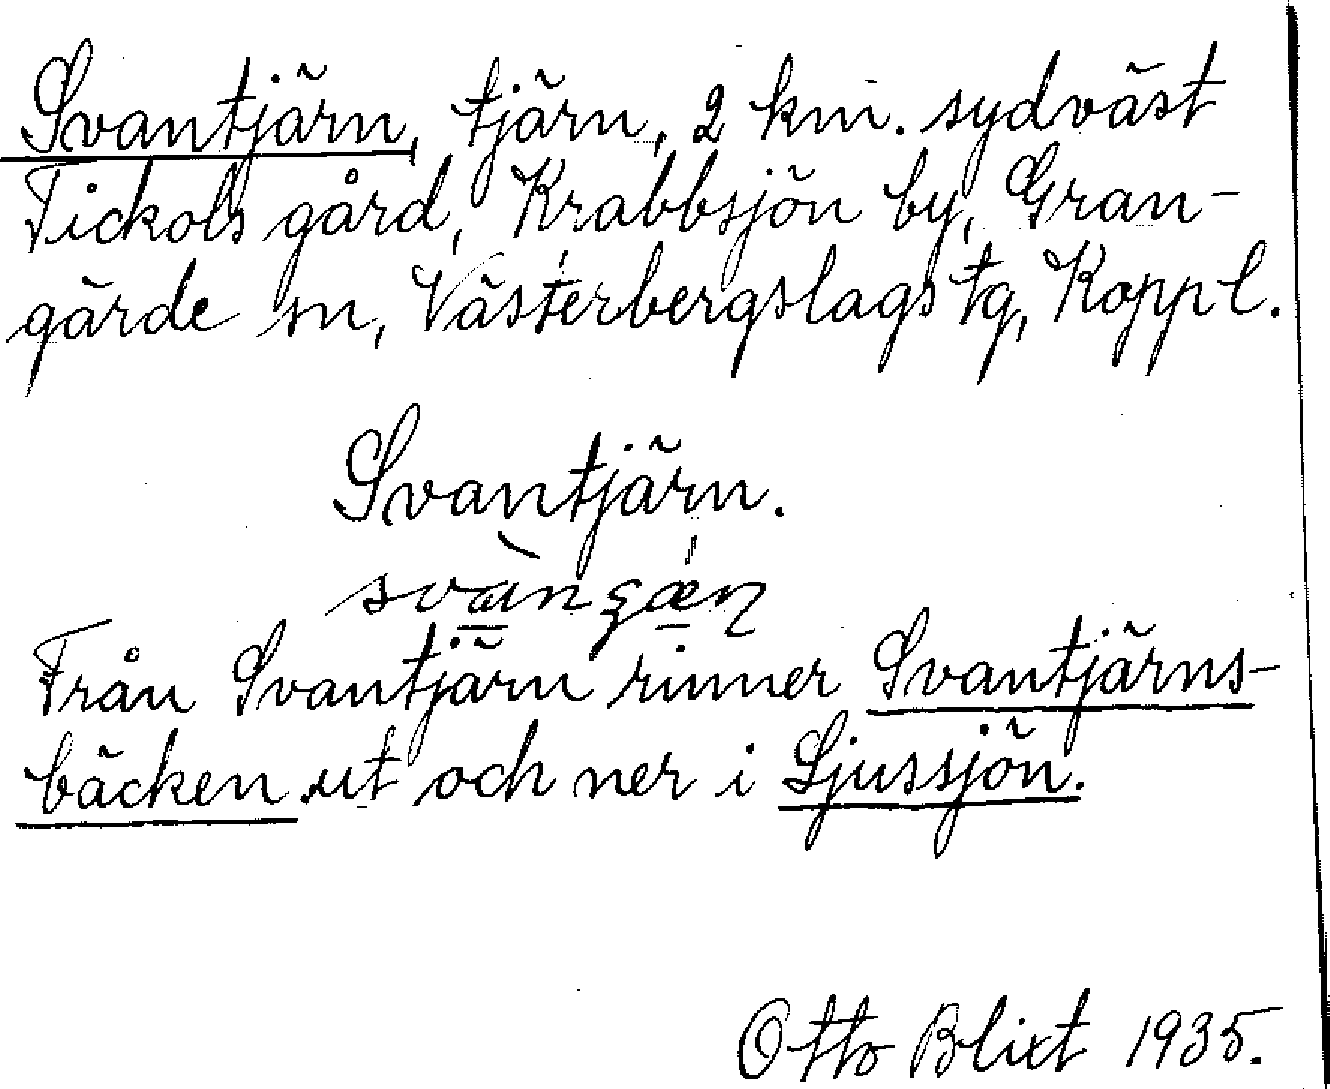 Svantjärn, tjärn, 2 km. sydväst
Tickols gård, Krabbsjön by, Gran-
gärde sn, Västerbergslags tg, Koppl.
Svantjärn.
Från Svantjärn rinner Svantjärns-
bäcken ut och ner i Ljussjön.
Otto Blixt 1935.